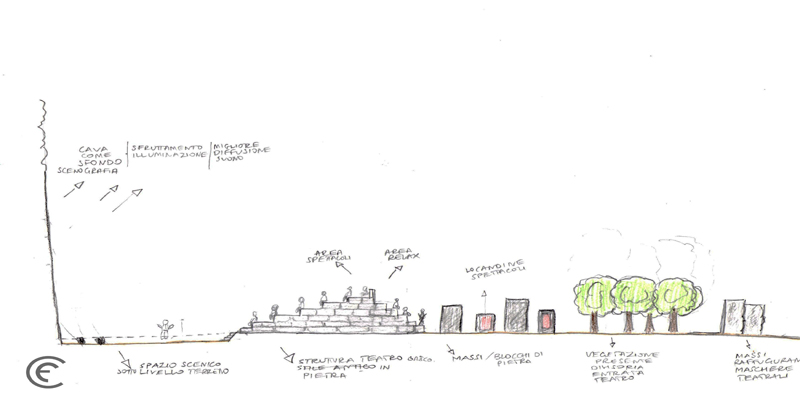 CAVA
COME
SFONDO
SCENOGRAFIA
SFRUTTAMENTO
ILLUMINAZIONE
MIGLIORE
DIFFUSIONE
SUONO
AREA
SPETTACOLI
AREA
RELAX
LOCANDINE
SPETTACOLI
SPAZIO SCENICO
SOTTO LIVELLO TERRENO
STRUTURA TEATRO GRECO
STILE ANTICO IN
PIETRA
MASSI / BLOCCHI DI
PIETRA
VEGETAZIONE
PRESENTE
DIVISORIA
ENTRATA
TEATRO
MASSI
RAFFIGURAN
MASCHERE
TEATRALI